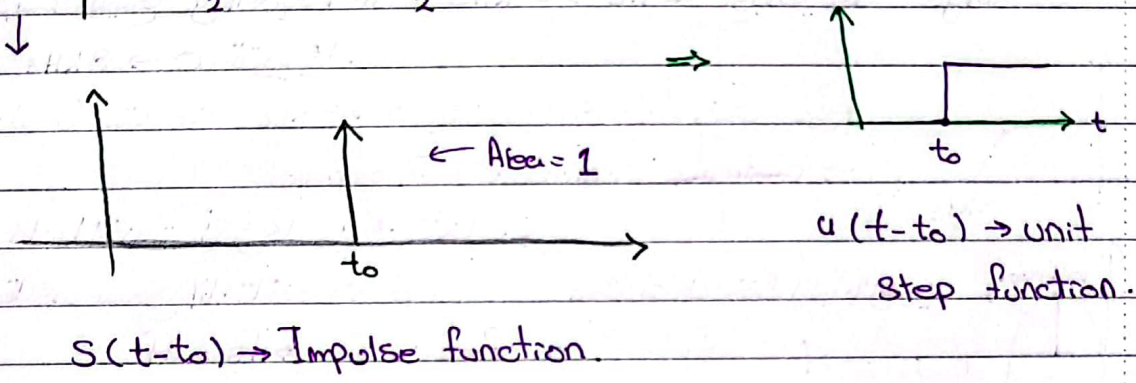 ← Area = 1
t
t₀
t₀
u(t-t₀) → unit
step function.
δ(t-t₀) → Impulse function.